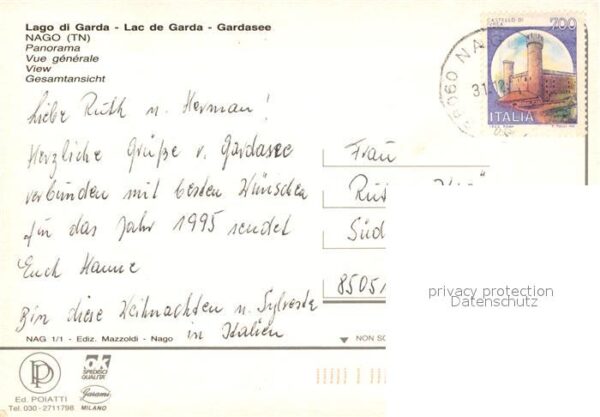 Lago di Garda - Lac de Garda - Gardasee
NAGO (TN)
Panorama
Vue générale
View
Gesamtansicht
Liebe Ruth u. Herman!
Herzliche Grüße v. Gardasee
verbunden mit besten Wünschen
für das Jahr 1995 sendet
Euch Hanne
Bin diese Weihnachten u. Sylvester
in Italien
NAG 1/1 - Ediz. Mazzoldi - Nago
NON SC
Ed. POIATTI
Tel. 030-2711798
OK
SPEDISCI
QUALITA'
Garami
MILANO
CASTELLO DI
IVREA
700
ITALIA
38060 NAG
31.12
Frau
Rut
Süd
8505
privacy protection
Datenschutz